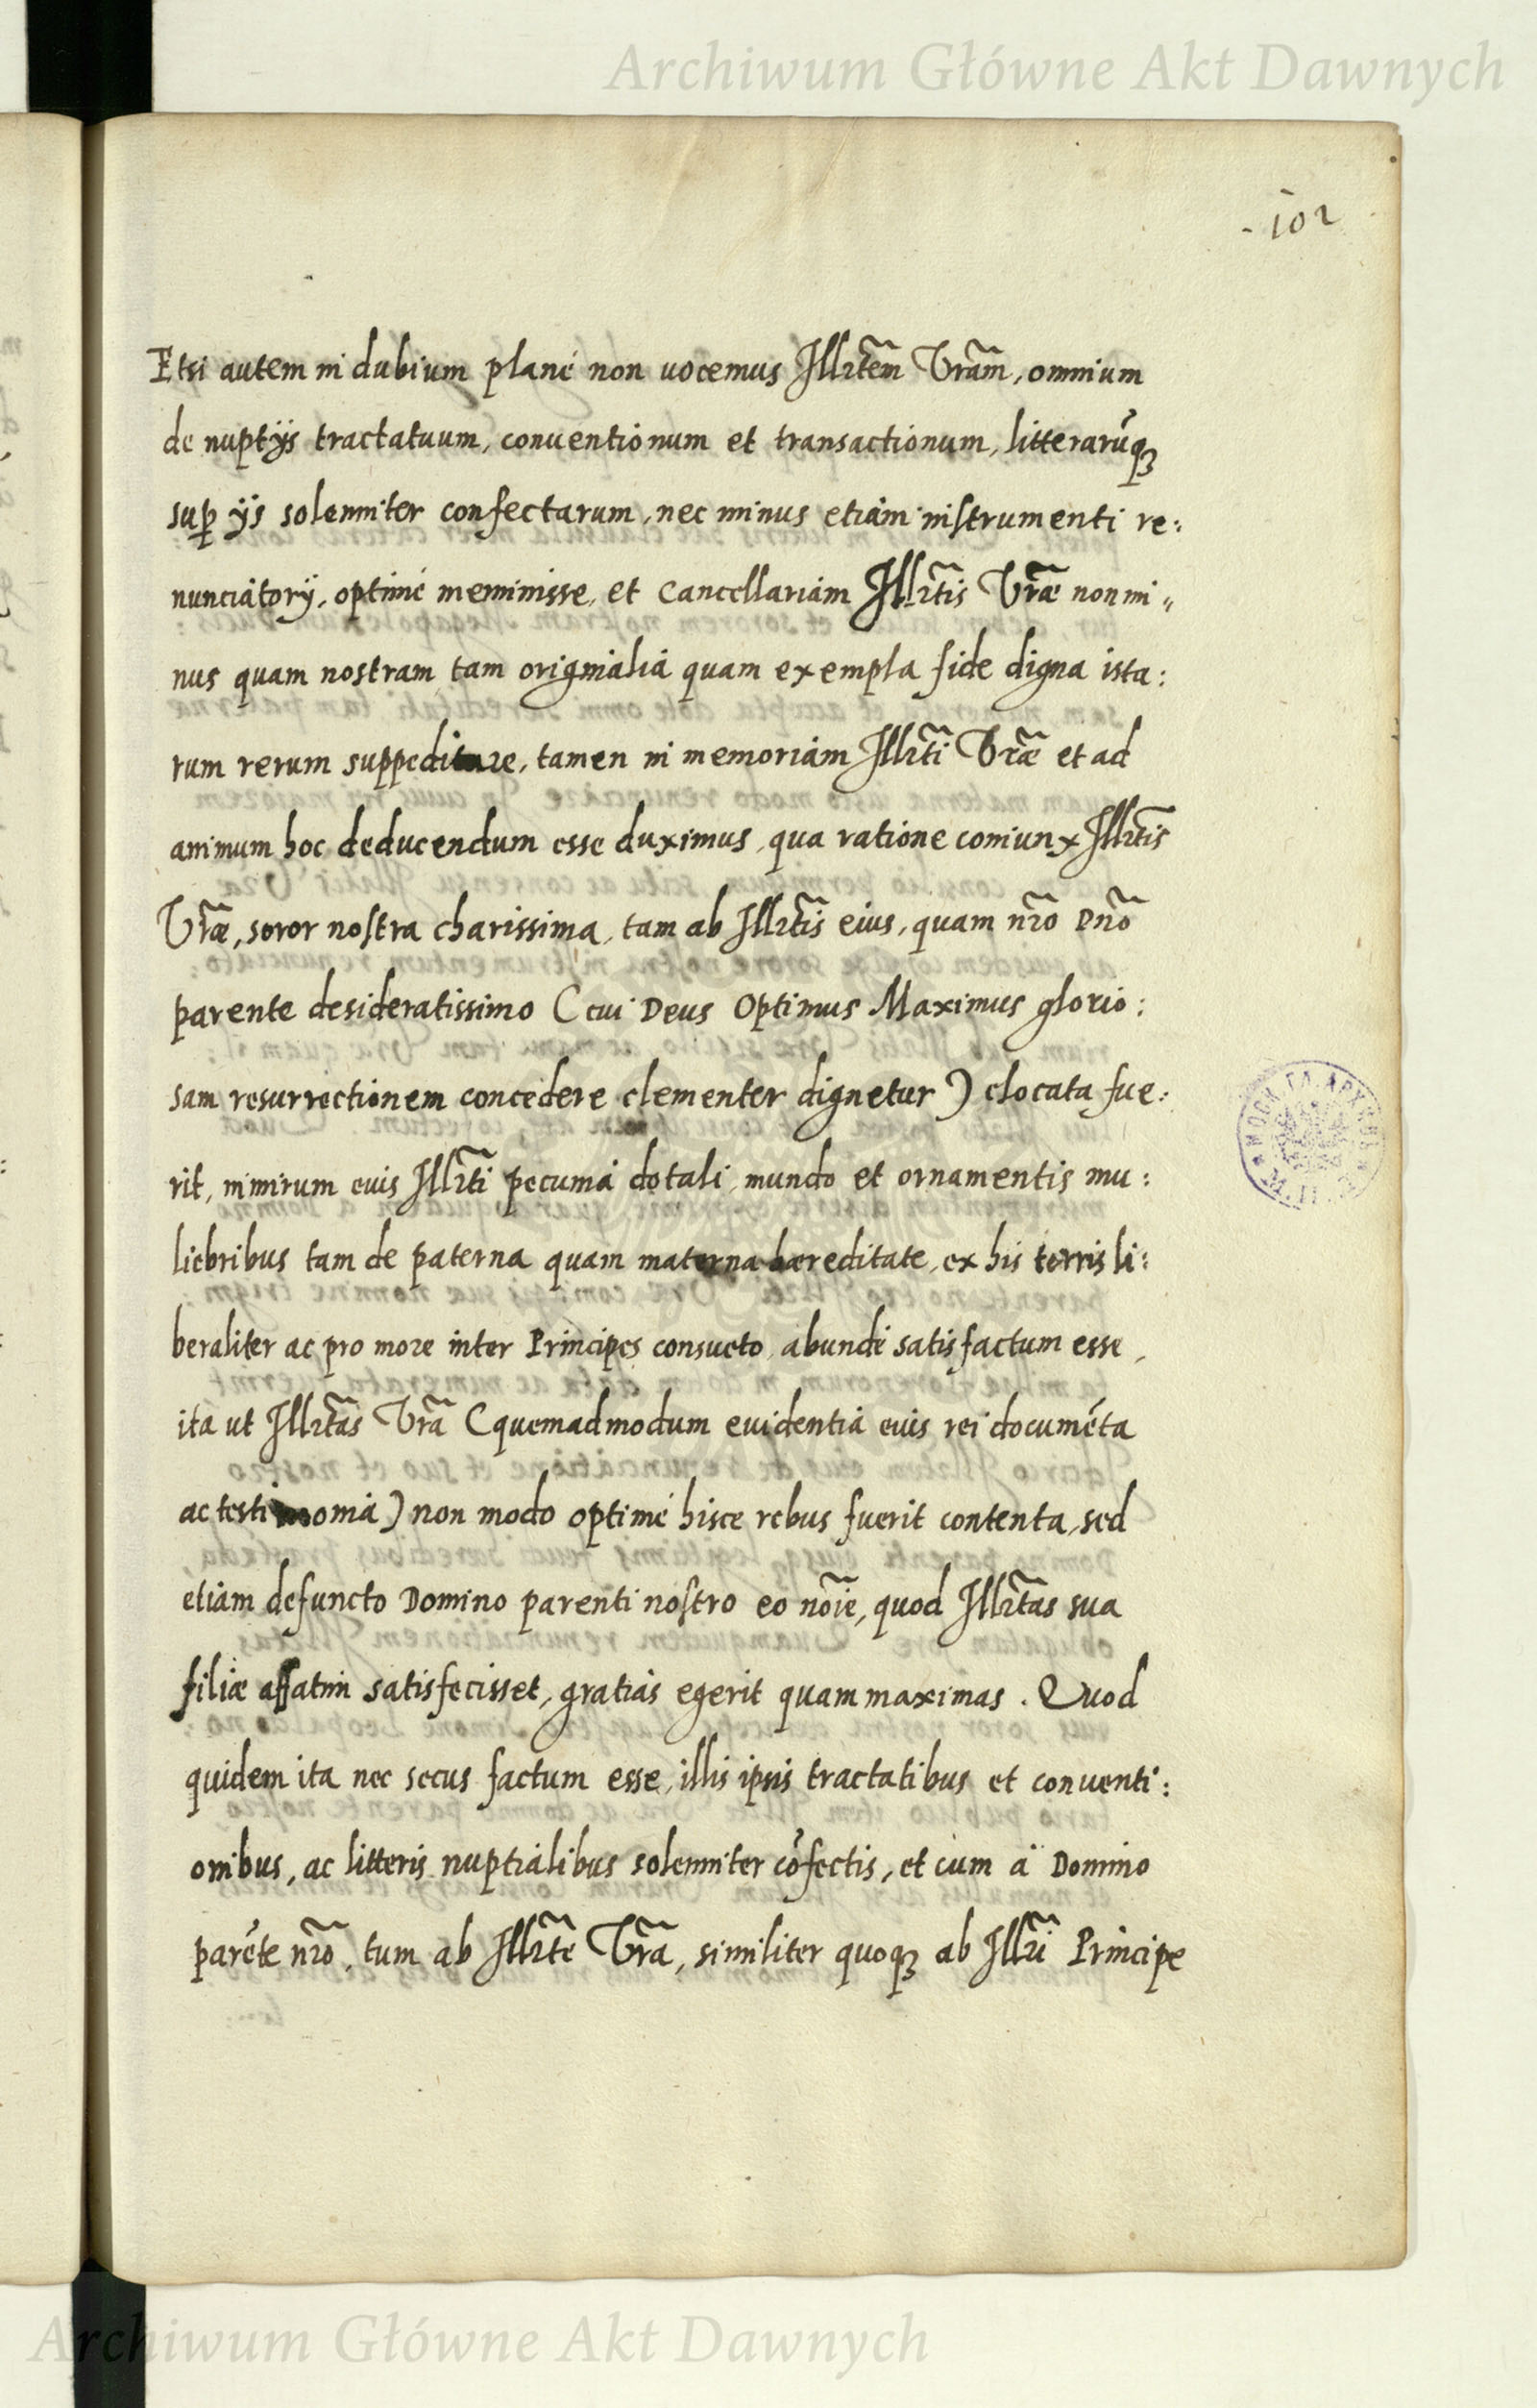 Archiwum Główne Akt Dawnych
102
Etsi autem in dubium planè non uocemus Illr̃tem Vr̃am, omnium
de nuptijs tractatuum, conuentionum et transactionum, litterarũq;
sup ijs solenniter confectarum, nec minus etiam instrumenti re:
nunciatorij, optimè meminisse, et Cancellariam Illr̃tis Vr̃æ non mi„
nus quam nostram, tam originalia quam exempla fide digna ista:
rum rerum suppeditare, tamen in memoriam Illr̃ti Vr̃æ et ad
animum hoc deducendum esse duximus, qua ratione coniunx Illr̃tis
Vr̃æ, soror nostra charissima, tam ab Illr̃tis eius, quam nr̃o Dño
parente desideratissimo (cui Deus Optimus Maximus glorio:
sam resurrectionem concedere clementer dignetur) elocata fue:
rit, nimirum euis Illr̃ti pecunia dotali, mundo et ornamentis mu:
liebribus tam de paterna quam materna hæreditate, ex his terris li:
beraliter ac pro more inter Principes consueto, abundè satisfactum esse,
ita ut Illr̃tas Vr̃a (quemadmodum euidentia euis rei documẽta
ac testimonia) non modo optimè hisce rebus fuerit contenta, sed
etiam defuncto Domino parenti nostro eo nõie, quod Illr̃tas sua
filiæ affatim satisfecisset, gratias egerit quam maximas. Quod
quidem ita nec secus factum esse, illis ipsis tractatibus et conuenti:
onibus, ac litteris nuptialibus solenniter cõfectis, et cum à Domino
parẽte nr̃o, tum ab Illr̃te Vr̃a, similiter quoq; ab Illr̃i Principe
Archiwum Główne Akt Dawnych